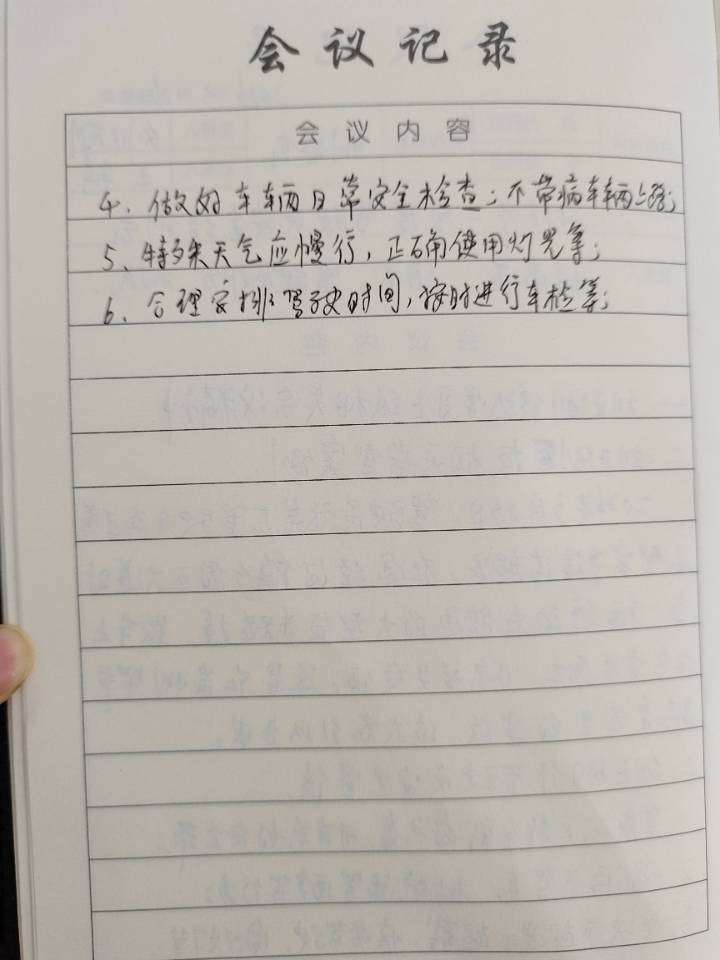 会议记录
会议内容
4、做好车辆日常安全检查；不带病车辆上路；
5、特殊天气应慢行，正确使用灯光等；
6、合理安排驾驶时间，按时进行车检等；